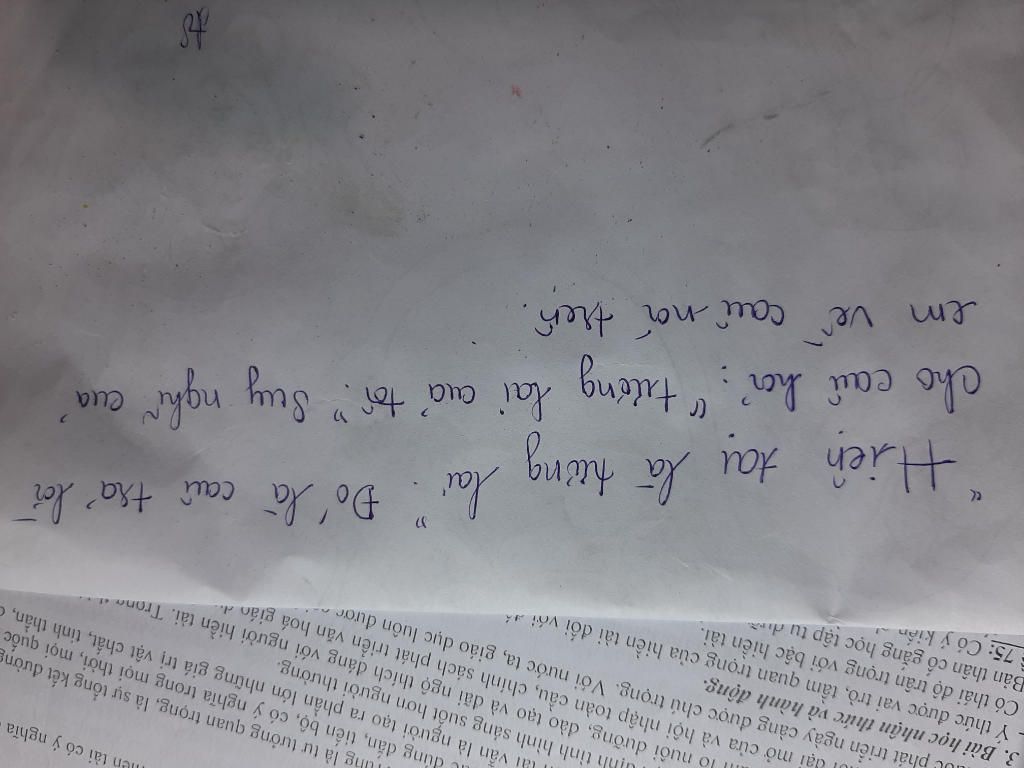 hiền tài có ý nghĩa
là tư tưởng quan trọng, là sự tổng kết đường
dân, tiến bộ, có ý nghĩa trong mọi thời, mọi quốc
tài vẫn là người tạo ra phần lớn những giá trị vật chất, tinh thần,
định tình hình sáng suốt hơn người thường.
lo nuôi dưỡng, đào tạo và đãi ngộ thích đáng với người hiền tài. Trong
đại mở cửa và hội nhập toàn cầu, chính sách phát triển văn hoá giáo
phát triển ngày càng được chú trọng. Với nước ta, giáo dục luôn được
3. Bài học nhận thức và hành động.
Ý thức được vai trò, tầm quan trọng của hiền tài đối với
Có thái độ trân trọng với bậc hiền tài.
Bản thân cố gắng học tập tu dưỡng
75: Có ý kiến
"Hiện tại là tương lai". Đó là câu trả lời
cho câu hỏi: "tương lai của tôi". Suy nghĩ của
em về câu nói trên.